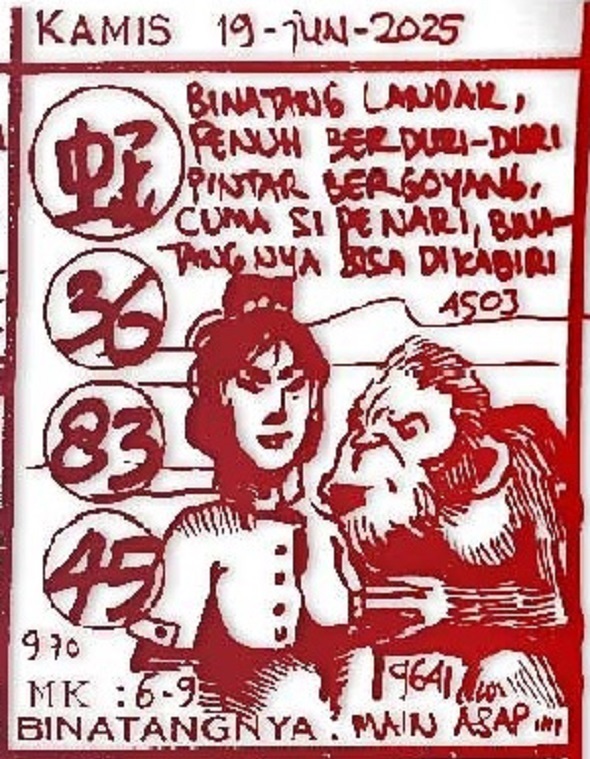 KAMIS 19-JUN-2025
BINATANG LANDAK,
PENUH BERDURI-DURI
PINTAR BERGOYANG,
CUMA SI PENARI, BINA-
TANGNYA BISA DIKABIRI
4503
36
83
45
970
9641
MK : 6-9
BINATANGNYA : MAIN ASAP